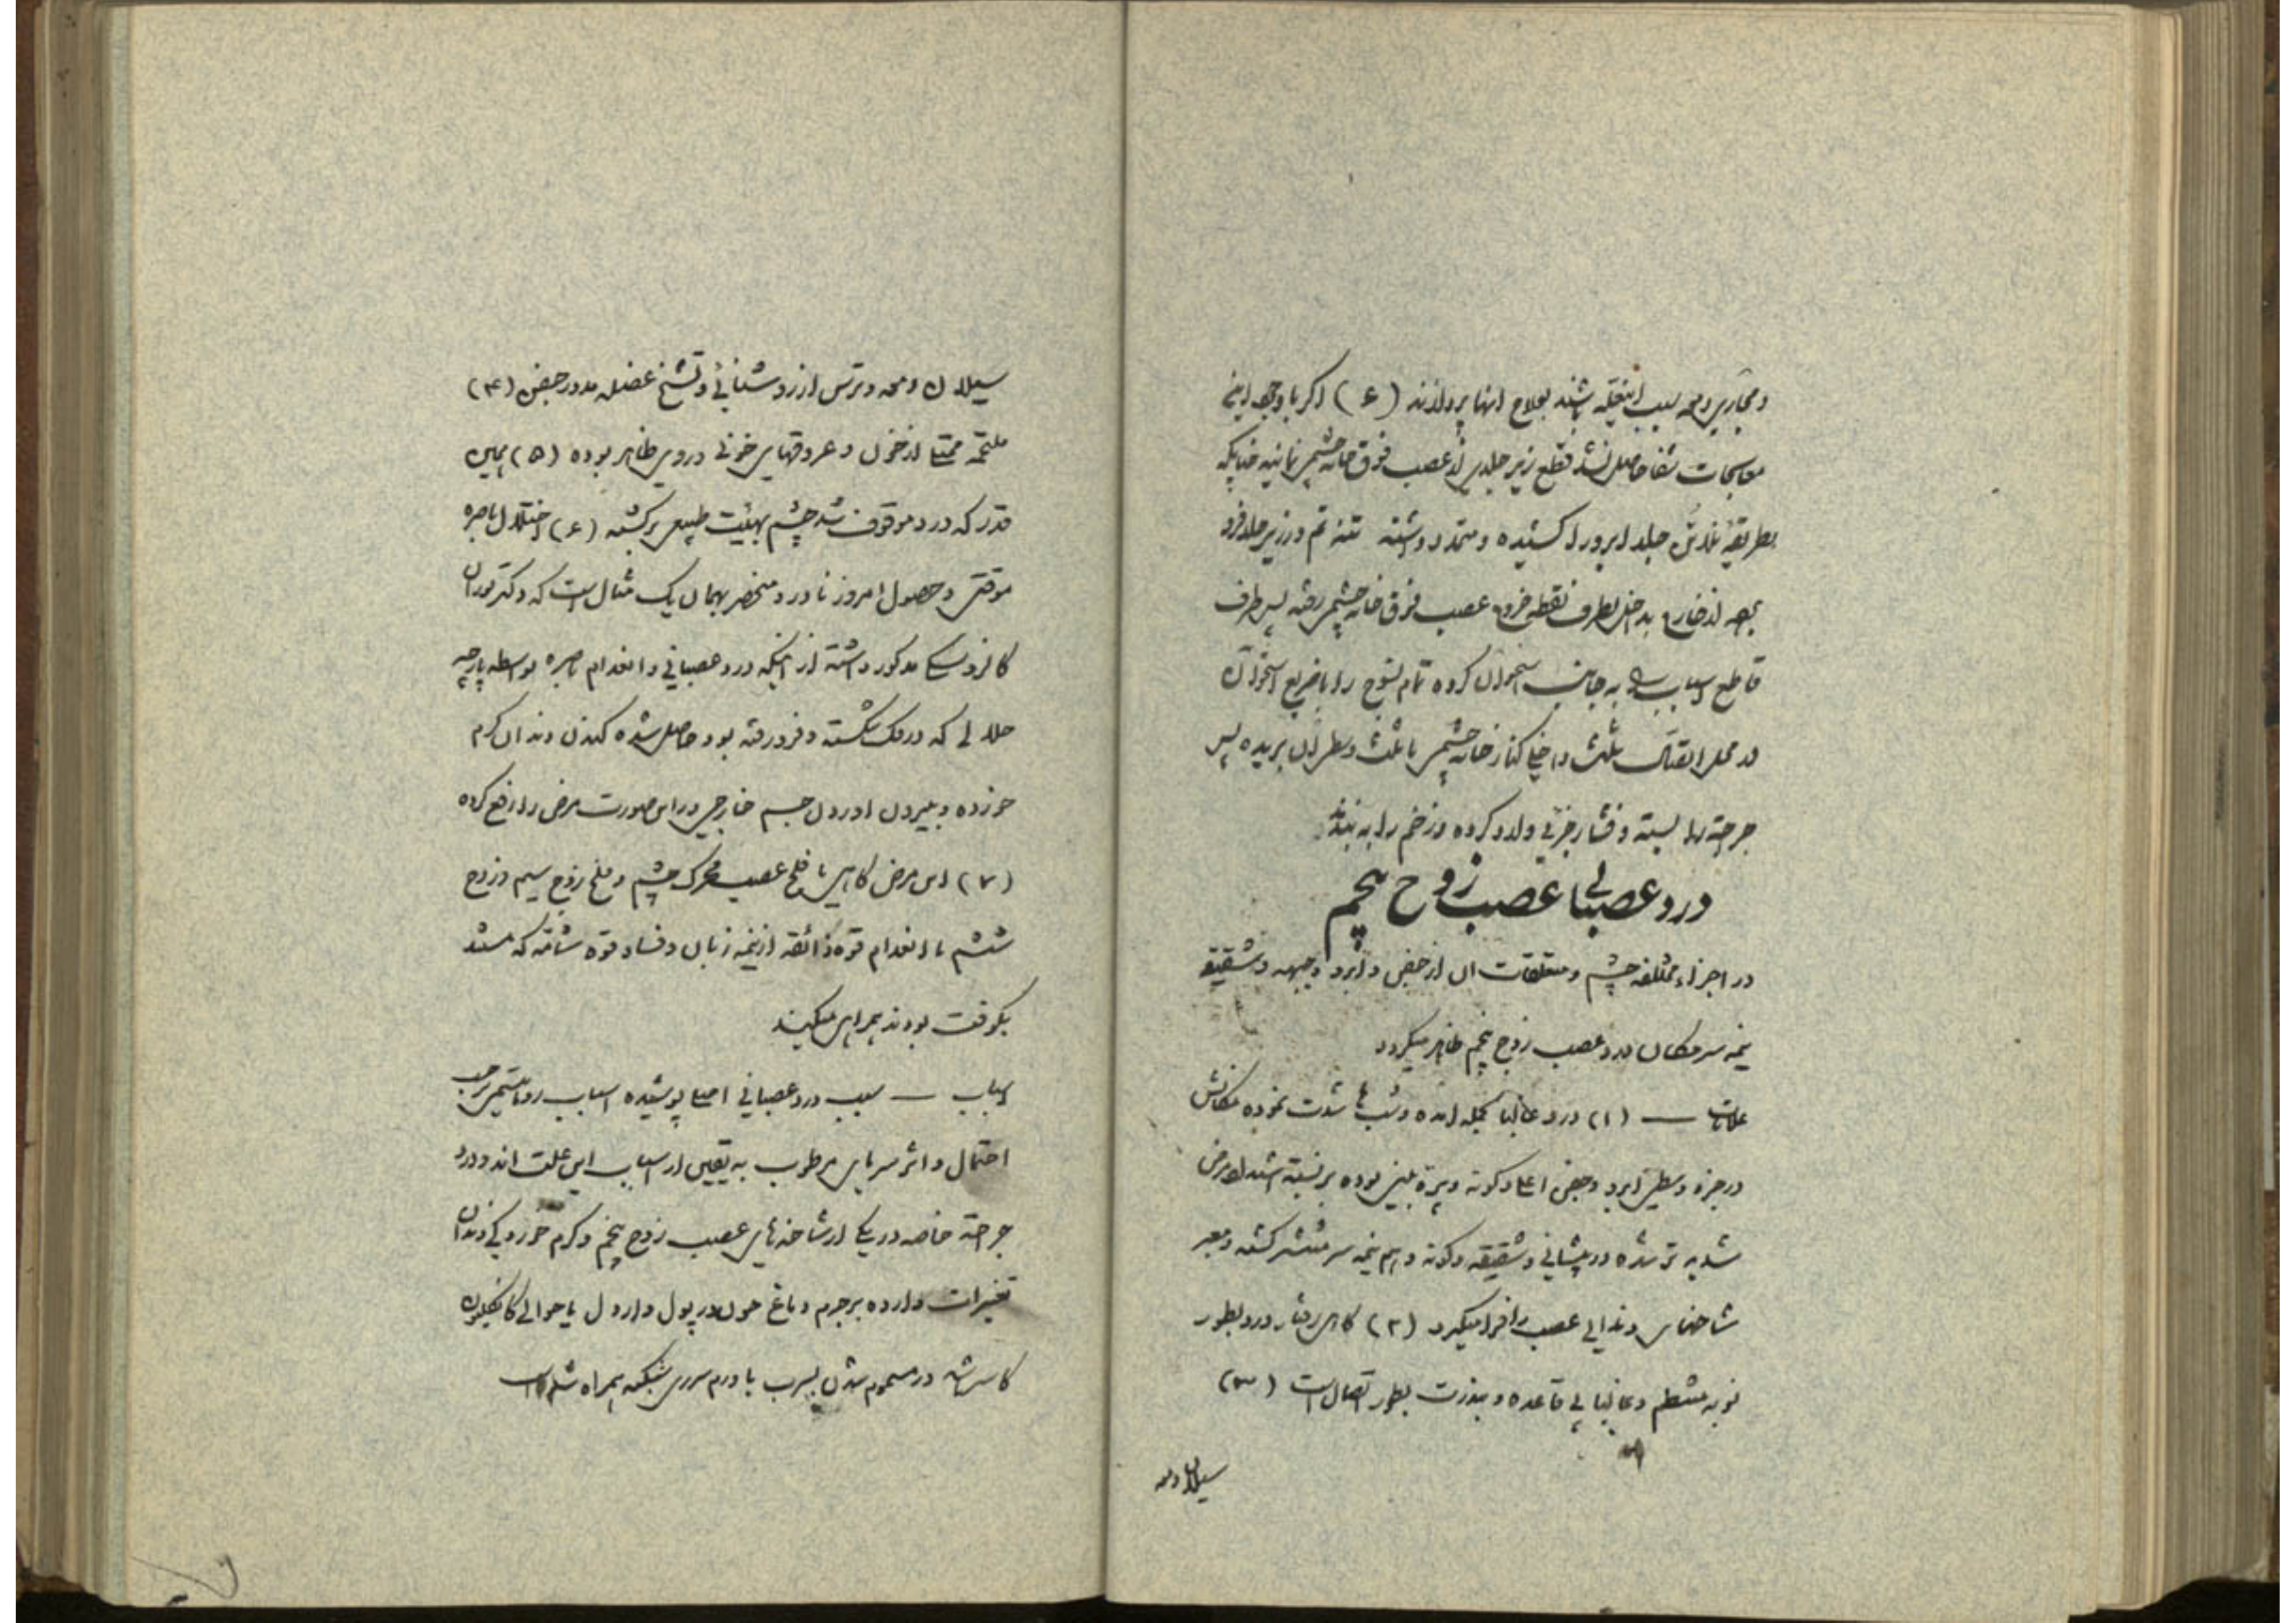 و مجاری دمعه سبب اینعله باشند بعلاج آنها پردازند (۶) اگر باوجود این
معالجات شفا حاصل نشد قطع زیر جلدی از عصب فوق خانه چشم نمایند چنانکه
بطریقه جلد ابرو را کشیده و متمدد داشته تنه تم در زیر جلد فرو
از خارج بداخل بطرف نقطه خروج عصب فوق خانه چشم رفته پس طرف
قاطع اسباب را به جانب استخوان کرده تمام نسوج را با ضریع استخوان
در محل اتصال ثلث داخلی کنار خانه چشم با ثلث وسطی آن بریده پس
جراحة را بسته و فشار جزئی وارد کرده و زخم را به بندند
درد عصبانی عصب زوج پنجم
در اجزاء مختلفه چشم و متعلقات آن از جفن و ابرو و جبهه و شقیقه
نیمه سر مکان درد عصب زوج پنجم ظاهر میگردد
علامات — (۱) درد غالبا بحمله آمده و شبها شدت نموده مکانش
در جزء وسطی ابرو و جفن اعلا و گونه و پره بینی بوده بر نسبة اشتداد مرض
شدید تر شده در پیشانی و شقیقه و گونه و هم نیمه سر منتشر گشته و معبر
شاخهای دندانی عصب را فرا میگیرد (۲) گاهی رفتار درد بطور
نوبه منتظم و غالبا بی قاعده و بندرت بطور اتصال است (۳)
سیلان دمعه
سیلان دمعه و ترس از روشنائی و تشنج عضله مدور جفن (۴)
ملتحمه ممتلی از خون و عروقهای خونی در وی ظاهر بوده (۵) همین
قدر که درد موقوف شد چشم بهیئت طبیعی برگشته (۶) اختلال باصره
موقتی و حصول امروز نادر و منحصر بهمان یک مثال است که دکتر
مذکور داشته از اینکه درد عصبانی و انعدام باصره بواسطه پارچه
خلالی که در فک شکسته و فرو رفته بود حاصل شده کندن دندان کرم
خورده و بیرون آوردن جسم خارجی در این صورت مرض را رفع کرده
(۷) این مرض گاهی با فلج عصب محرک چشم و فلج زوج سیم و زوج
ششم با انعدام قوه ذائقه از نیمه زبان و فساد قوه شامه که مستند
بکوفت بودند همراهی میکنند
اسباب — سبب درد عصبانی اصلا پوشیده اسباب روماتیسمی بر حسب
احتمال و اثر سرمای مرطوب به تعیین از اسباب این علت اند و درد
جراحة خاصه در یکی از شاخه های عصب زوج پنجم و کرم خوردگی دندان
تغییرات وارده بر جرم دماغ حول یا حوالی
در مسموم شدن بسرب یا ورم سری شبکیه همراه شده است